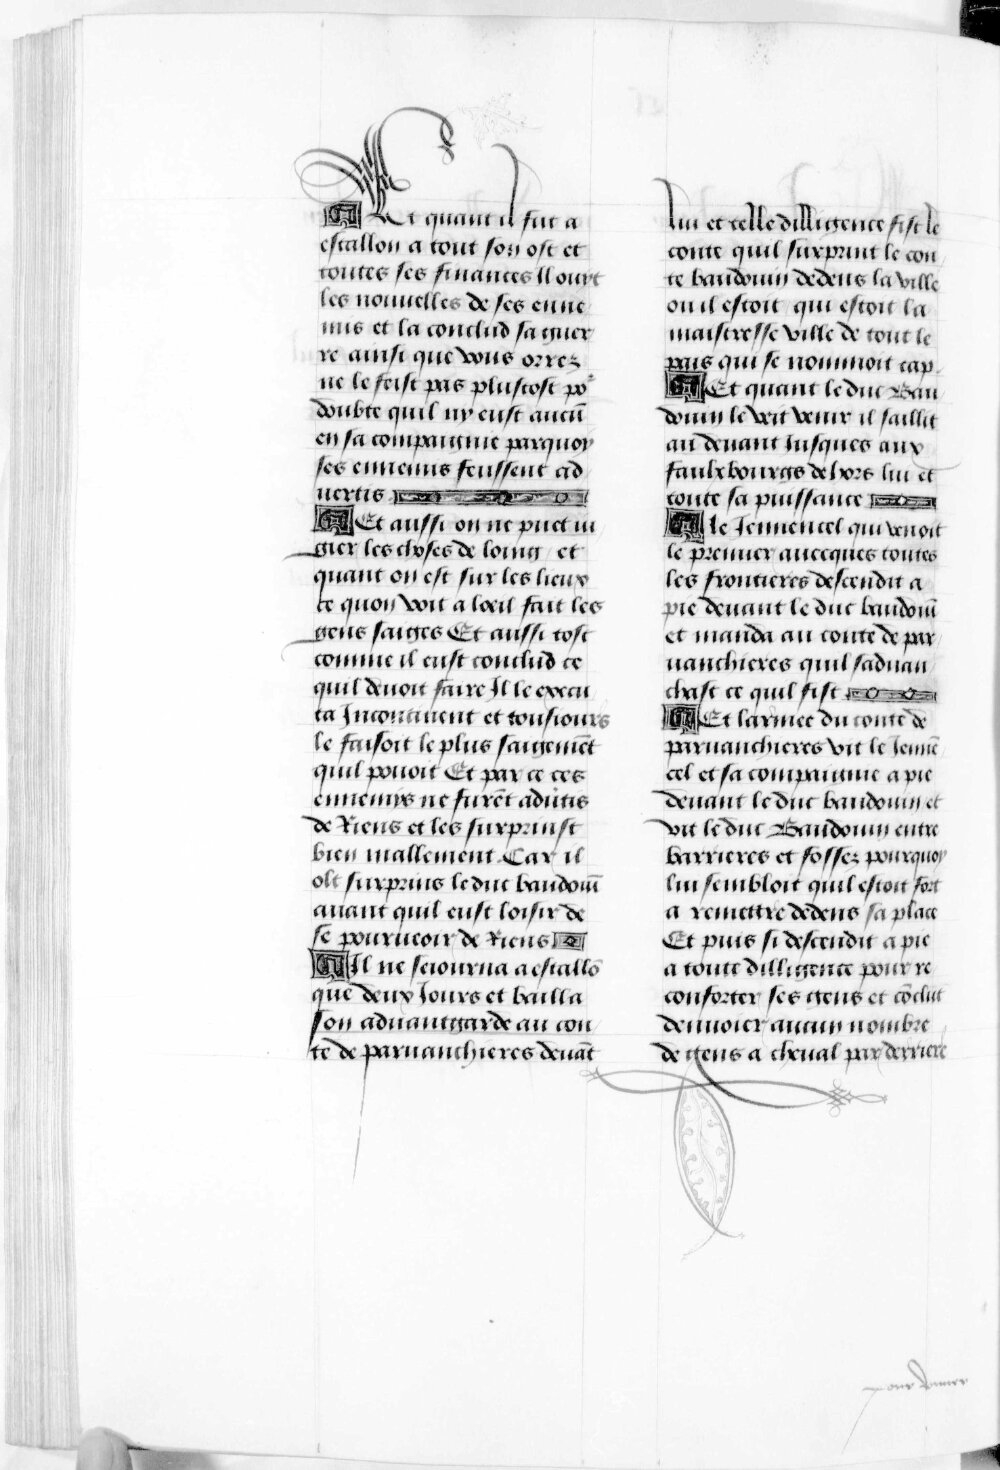 Et quant il fut a
estallon a tout son ost et
toutes ses finances Il ouyt
les nouuelles de ses enne
mis et la conclud sa guer
re ainsi que vous orrez
ne le feist pas plustost po2
doubte quil ny eust aucũ
en sa compaignie parquoy
ses ennemis feussent ad
uertis
Et aussi on ne puet iu
gier les choses de loing / et
quant on est sur les lieux
ce quon voit a loeil fait les
gens saiges Et aussi tost
comme il eust conclud ce
quil deuoit faire Il le execu
ta Incontinent et tousiours
le faisoit le plus saigemẽt
quil pouoit Et par ce ces
ennemys ne furẽt aduẽtis
de Riens et les surprinst
bien mallement Car il
olt surprins le duc baudouĩ
auant quil eust loisir de
se pourueoir de Riens
Il ne seiourna a estallõ
que deux Iours et bailla
son aduantgarde au con
te de paruanchieres deuãt
lui et telle dilligence fist le
conte quil surprint le con
te baudouin dedens la ville
ou il estoit qui estoit la
maistresse ville de tout le
pais qui se nommoit cap
Et quant le duc Bau
douin le veit venir il saillit
au deuant Iusques aux
faulxbourgs dehors lui et
toute sa puissance
le Iennencel qui venoit
le premier auecques toutes
les frontieres descendit a
pie deuant le duc baudouĩ
et manda au conte de par
uanchieres quil saduan
chast ce quil fist
Et larmee du conte de
paruanchieres vit le Iennẽ
cel et sa compaignie a pie
deuant le duc baudouin et
vit le duc Baudouin entre
barrieres et fossez pourquoy
lui sembloit quil estoit fort
a remettre dedens sa place
Et puis si descendit a pie
a toute dilligence pour re
conforter ses gens et cõclut
denuoier aucun nombre
de gens a cheual par derriere
pour donner